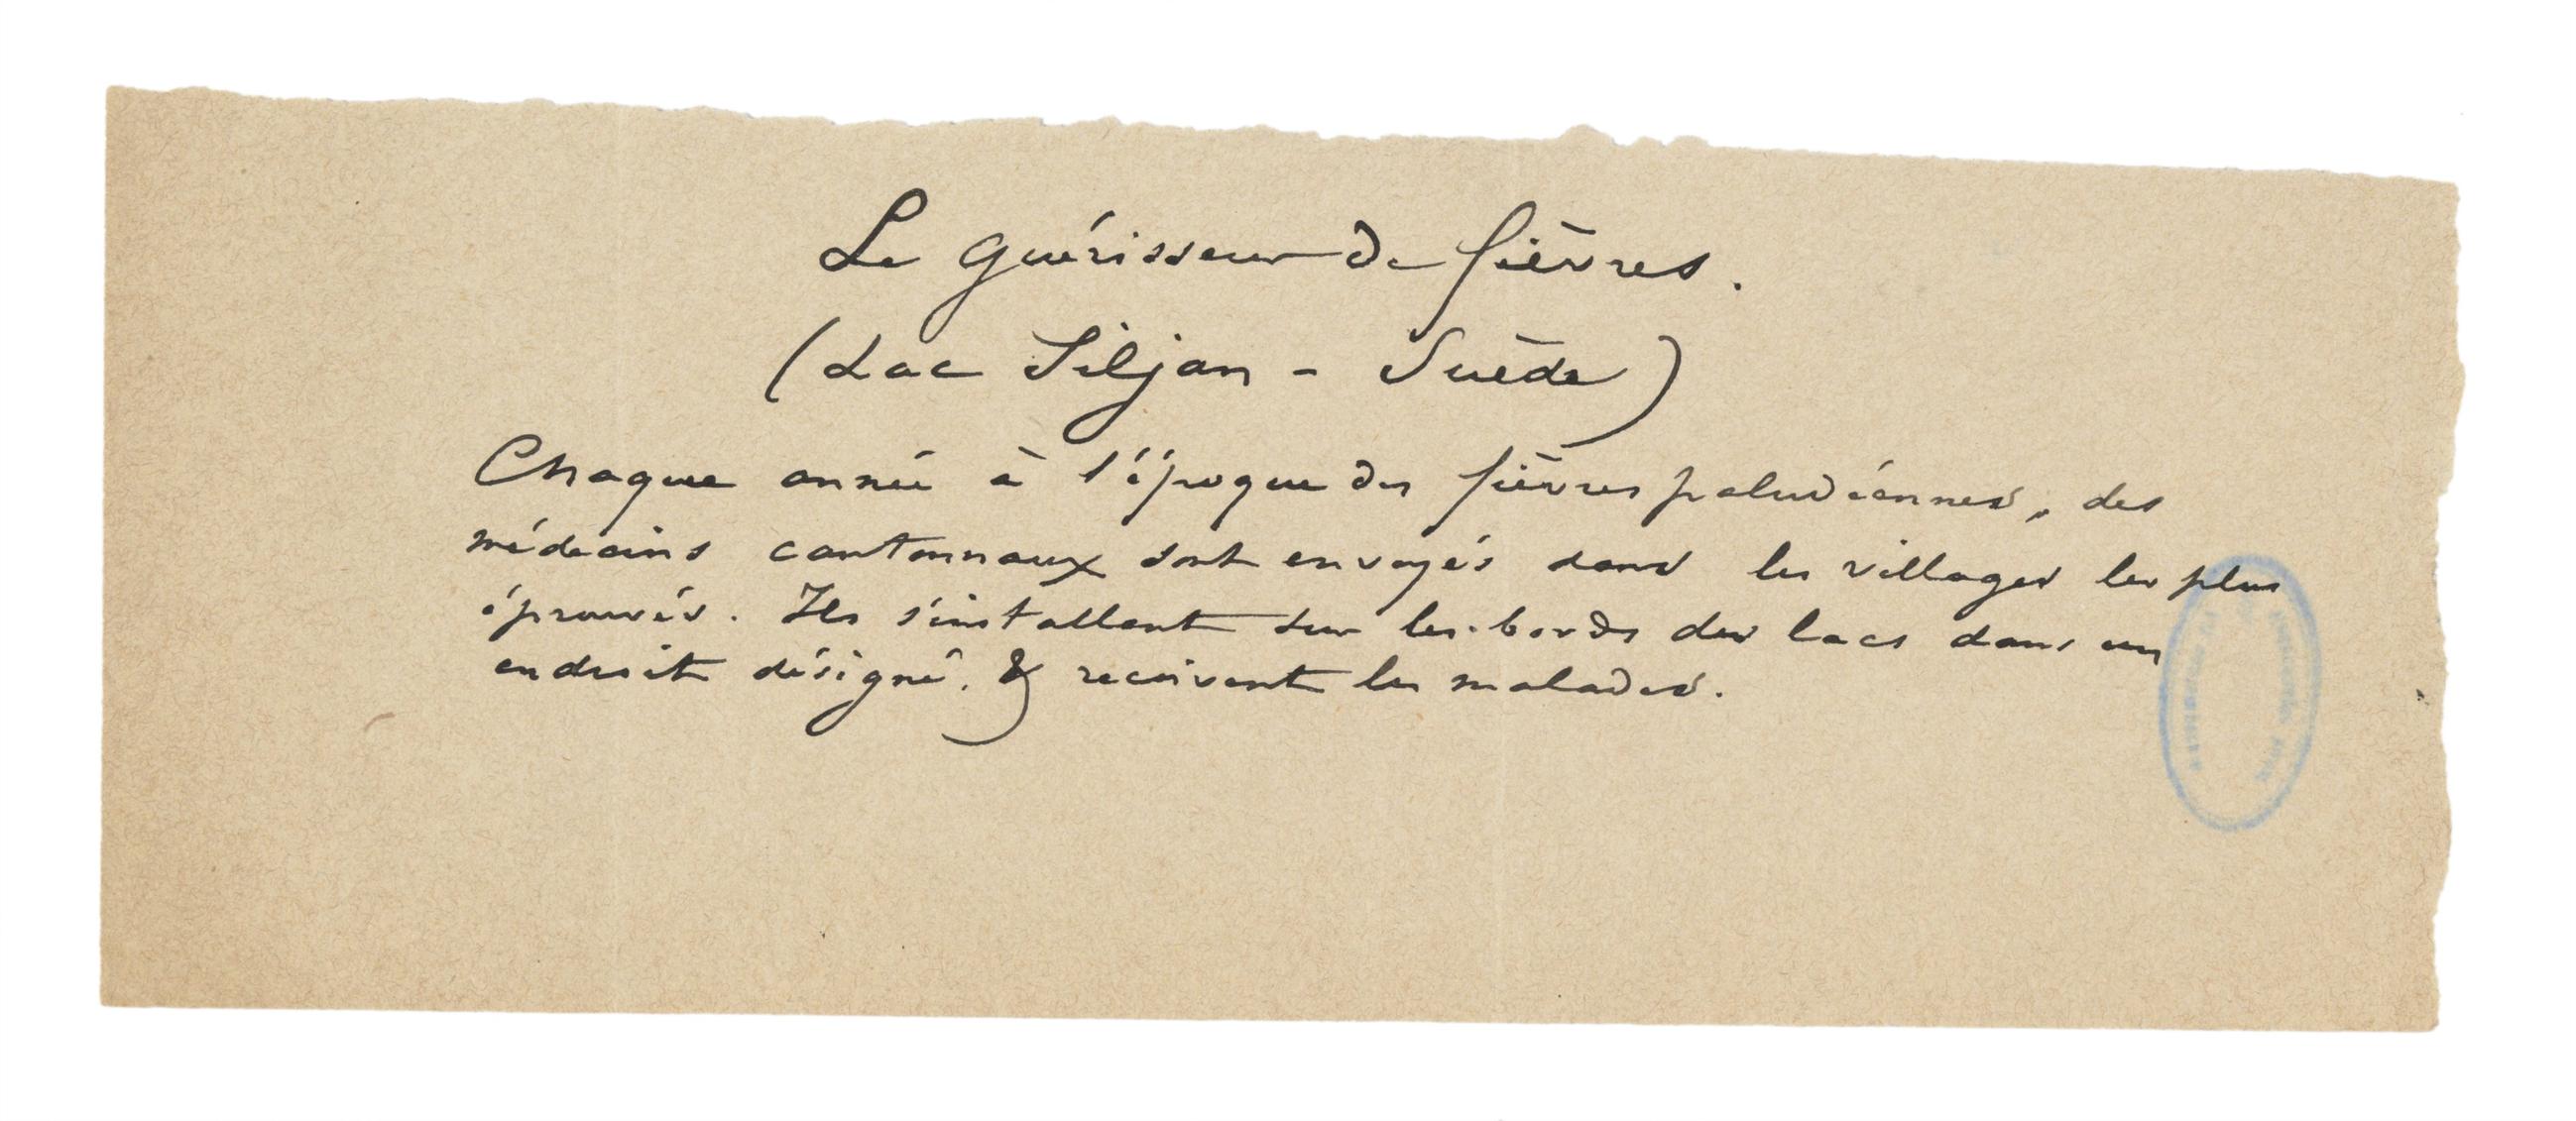 Le guérisseur de fièvres.
(Lac Siljan - Suède)
Chaque année à l'époque des fièvres paludéennes, des
médecins cantonnaux sont envoyés dans les villages les plus
éprouvés. Ils s'installent sur les bords des lacs dans un
endroit désigné. & reçoivent les malades.